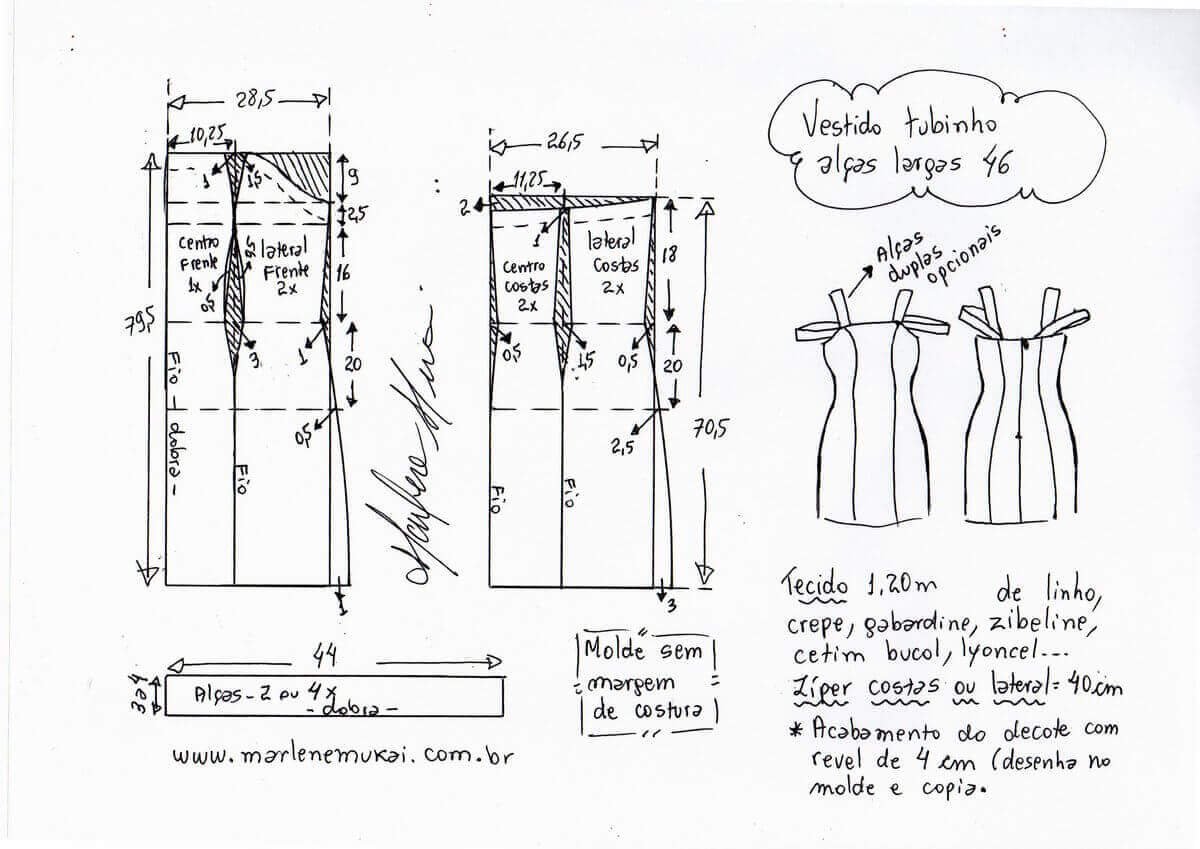 28,5
10,25
1
1,5
9
2,5
centro
Frente
1x
0,5
lateral
Frente
2x
16
79,5
3
1
20
0,5
Fio - dobra -
Fio
1
26,5
11,25
2
1
lateral
costas
2x
centro
costas
2x
18
0,5
1,5
0,5
20
2,5
70,5
Fio
Fio
3
44
3 e 4
Alças - 2 ou 4x
- dobra -
www.marlenemukai.com.br
Molde sem
margem
de costura
Vestido tubinho
alças largas 46
Alças
duplas
opcionais
Tecido 1,20m de linho,
crepe, gabardine, zibeline,
cetim bucol, lyoncel...
Zíper costas ou lateral = 40cm
* Acabamento do decote com
revel de 4 cm (desenha no
molde e copia.